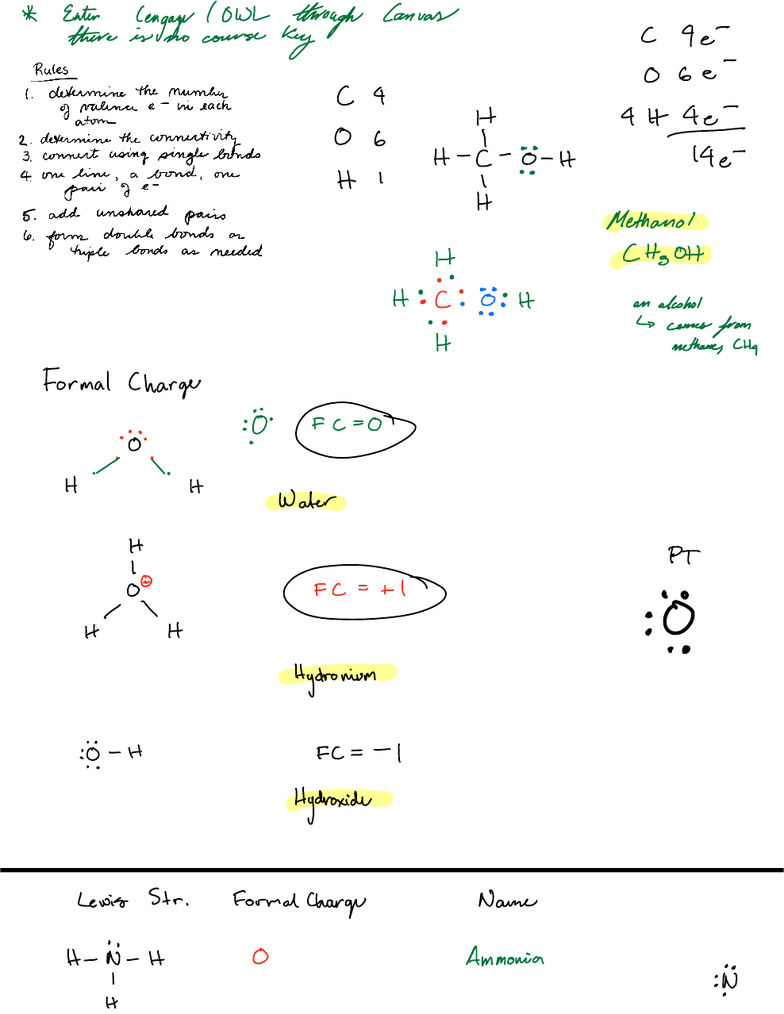 * Enter Cengage / OWL through Canvas
there is no course key
Rules
1. determine the number
of valence e- in each
atom
2. determine the connectivity
3. connect using single bonds
4. one line, a bond, one
pair of e-
5. add unshared pairs
6. form double bonds or
triple bonds as needed
C 4
O 6
H 1
H
H - C - O - H
H
C 4e-
O 6e-
4 H 4e-
14e-
Methanol
CH3OH
H
H : C : O : H
H
an alcohol
↳ comes from
methane, CH4
Formal Charge
O
H H
:O
FC = 0
Water
H
O ⊕
H H
FC = +1
Hydronium
PT
:O
:O - H
FC = -1
Hydroxide
Lewis Str. Formal Charge Name
H - N - H
H
O
Ammonia
:N